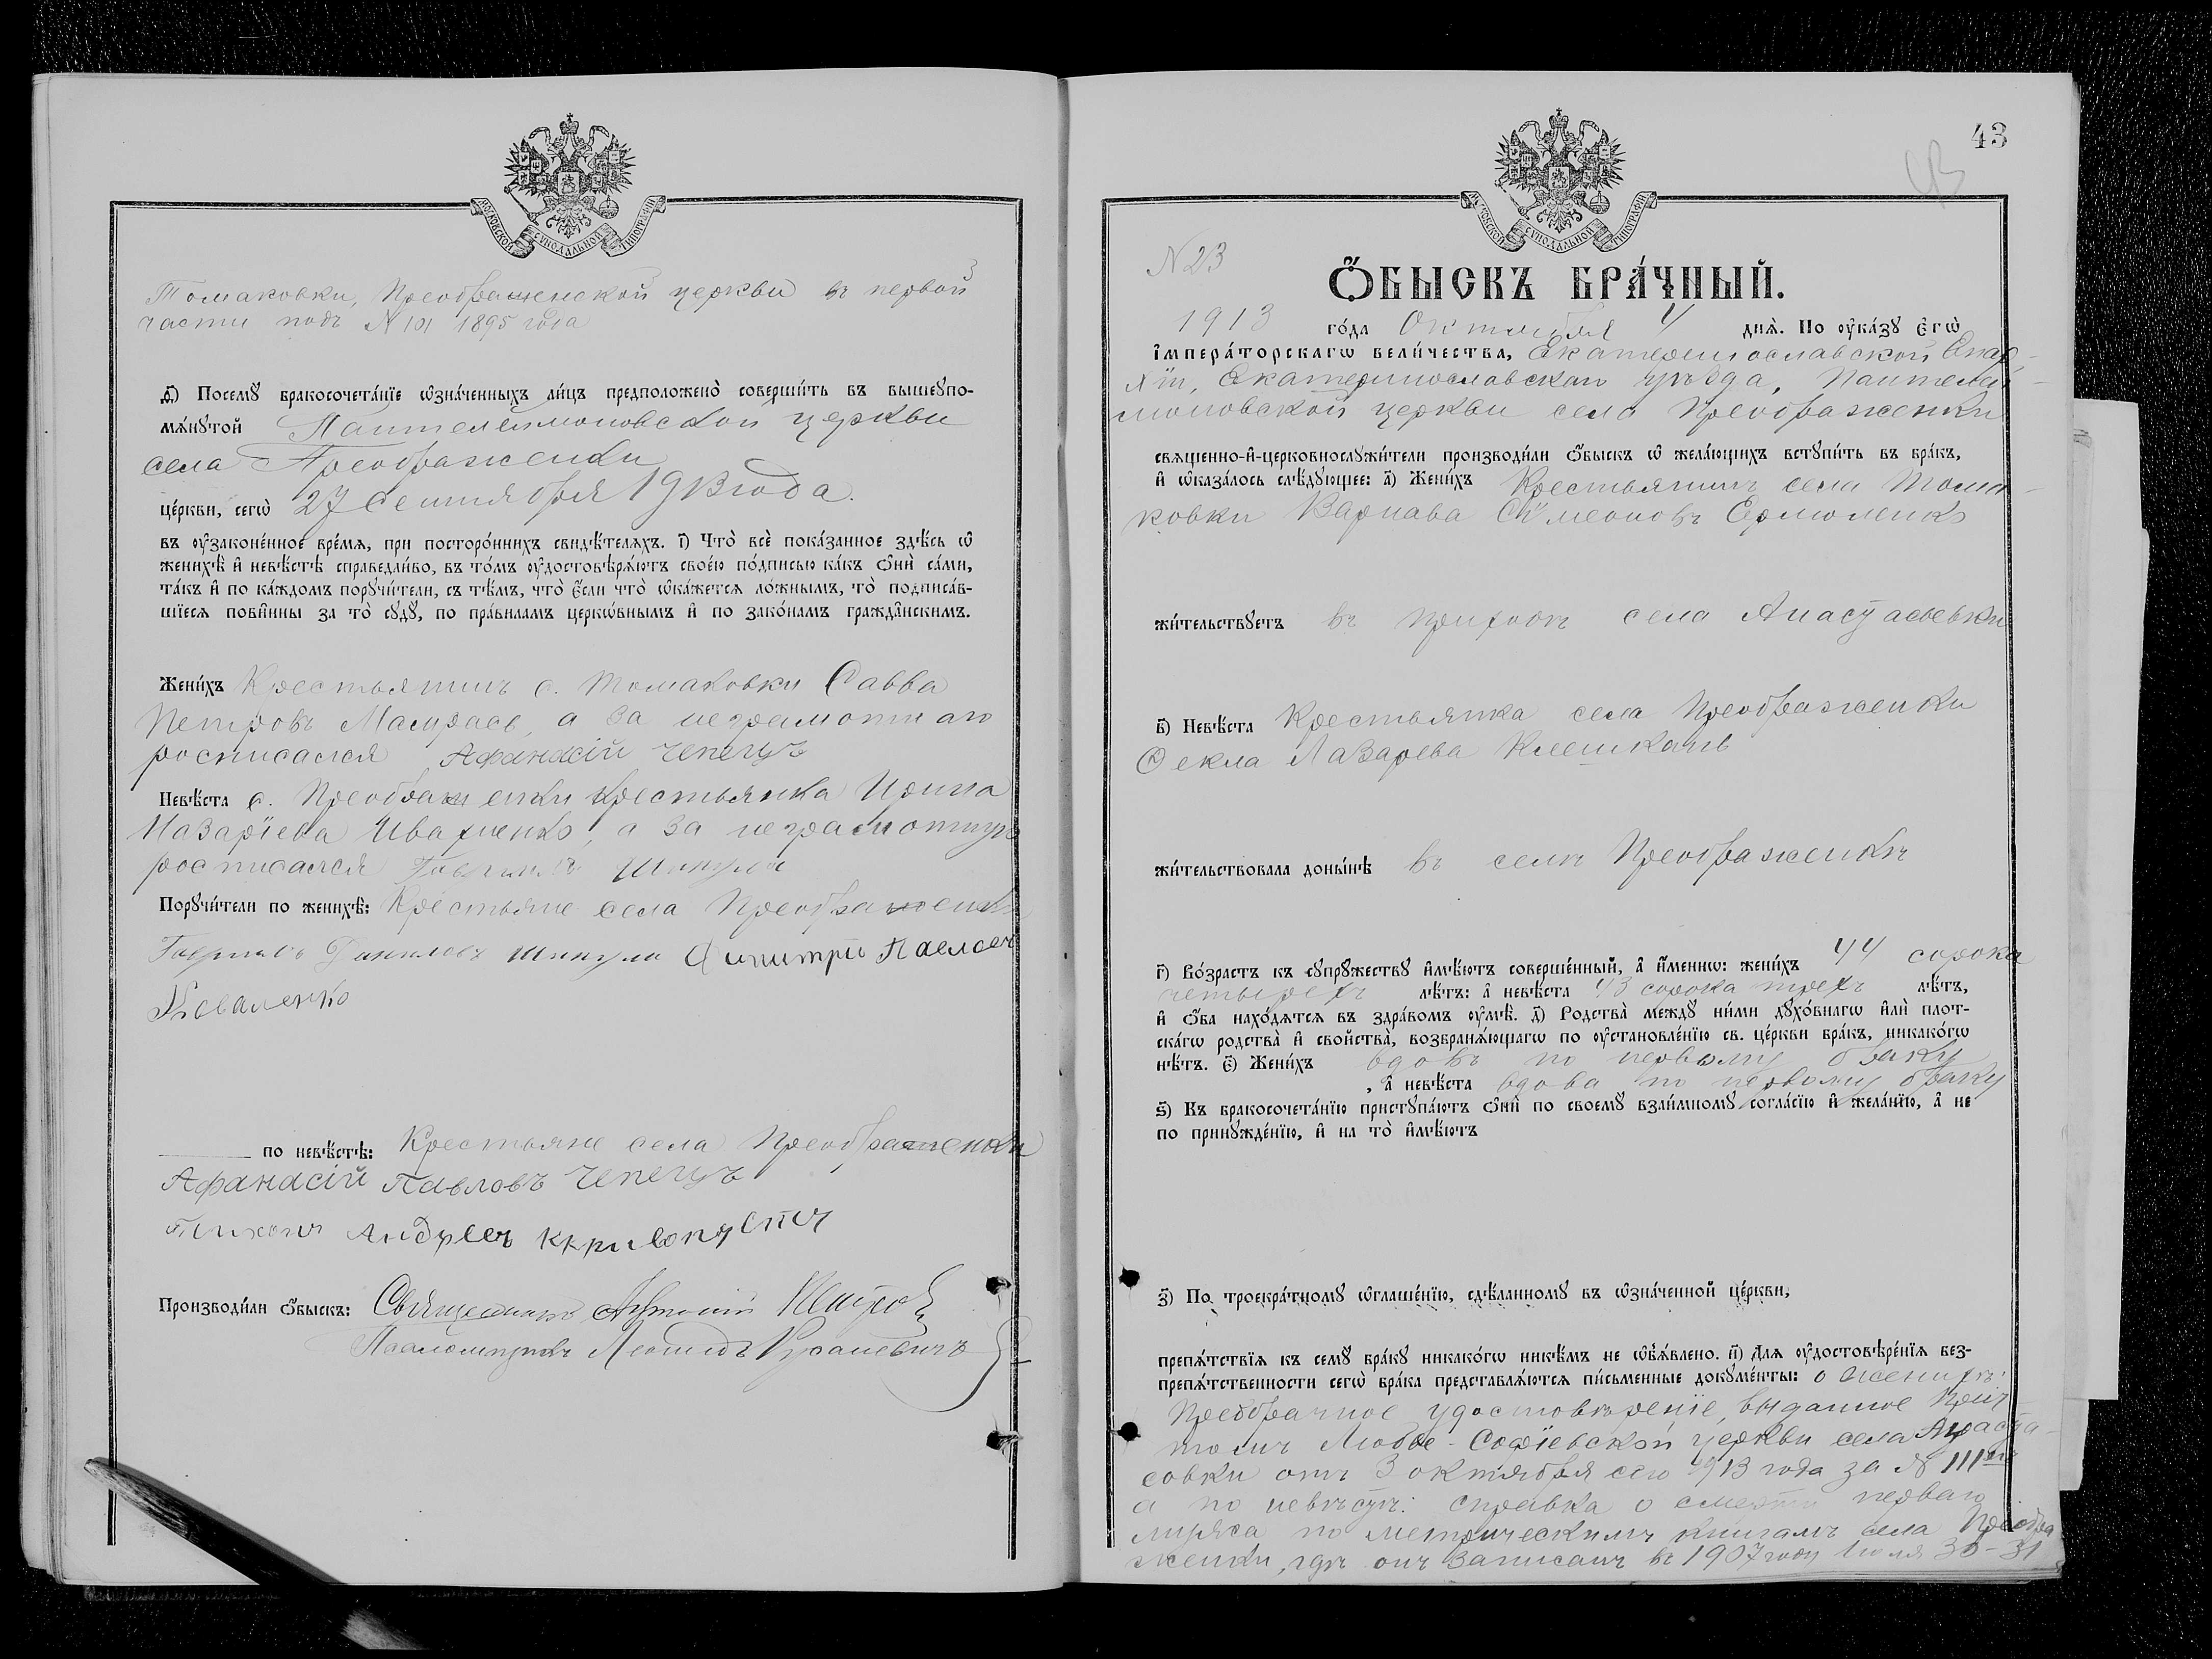 МОСКОВСКОЙ СѴНОДАЛЬНОЙ ТИПОГРАФІИ
Томаковки, Преображенской церкви въ первой
части подъ № 101 1895 года
д҃і) Посемꙋ̀ бракосочета́нїе ѡ҆зна́ченныхъ ли́цъ предположено̀ соверши́ть въ вышеꙋпо-
мѧ́нꙋтой Пантелеимоновской церкви
села Преображенки
це́ркви, сегѡ̀ 27 Сентября 1913 года.
въ ᲂу҆законе́нное вре́мѧ, при посторо́ннихъ свидѣ́телѧхъ. і҃) Что̀ всѐ пока́занное здѣ́сь ѡ҆
женихѣ̀ и҆ невѣ́стѣ справедли́во, въ то́мъ ᲂу҆достовѣрѧ́ютъ свое́ю по́дписью ка́къ ѻ҆нѝ са́ми,
та́къ и҆ по ка́ждомъ порꙋчи́тели, съ тѣ́мъ, что̀ є҆́сли что̀ ѡ҆ка́жетсѧ ло́жнымъ, то̀ подписа́в-
шїесѧ пови́нны за то̀ сꙋдꙋ̀, по пра́виламъ церко́внымъ и҆ по зако́намъ гражда́нскимъ.
Жени́хъ Крестьянинъ с. Томаковки Савва
Петровъ Мамрасъ, а за неграмотнаго
росписался Афанасій Чепецъ
Невѣ́ста с. Преображенки крестьянка Ирина
Назаріева Ивахненко, а за неграмотную
росписался Гавріилъ Шинула
Порꙋчи́тели по женихѣ̀: Крестьяне села Преображенки
Гавріилъ Даниловъ Шинула Димитрій Павлов
Коваленко
по невѣ́стѣ: Крестьяне села Преображенки
Афанасій Павловъ Чепецъ
Тихонъ Андреев
Производи́ли ѻ҆́быскъ: Священникъ Антоній
Псаломщикъ Леонидъ
43
43
МОСКОВСКОЙ СѴНОДАЛЬНОЙ ТИПОГРАФІИ
N 23
Ѻ҆́БЫСКЪ БРА́ЧНЫЙ.
1913 го́да Октября 4 днѧ̀. По ᲂу҆ка́зꙋ є҆гѡ̀
і҆мпера́торскагѡ вели́чества, Екатеринославской Епар-
хіи, Екатеринославскаго уѣзда, Пантелеи-
моновской церкви села Преображенки
свѧще́нно-и҆-церковнослꙋжи́тели производи́ли ѻ҆́быскъ ѡ҆ жела́ющихъ встꙋпи́ть въ бра́къ,
и҆ ѡ҆каза́лось слѣ́дꙋющее: а҃) Жени́хъ Крестьянинъ села Тома-
ковки Варнава Сѵмеоновъ Ермоленко
жи́тельствꙋетъ въ приходѣ села Анастасьевки
в҃) Невѣ́ста Крестьянка села Преображенки
Ѳекла Лазарева Клешкань
жи́тельствовала доны́нѣ въ селѣ Преображенкѣ
г҃) Во́зрастъ къ сꙋпрꙋ́жествꙋ и҆мѣ́ютъ соверше́нный, а҆ и҆́меннѡ: жени́хъ 44 сорока
четырехъ лѣ́тъ: а҆ невѣ́ста 43 сорока трехъ лѣ́тъ,
и҆ ѻ҆́ба нахо́дѧтсѧ въ здра́вомъ ᲂу҆мѣ̀. д҃) Родства̀ междꙋ̀ ни́ми дꙋхо́внагѡ и҆лѝ плот-
ска́гѡ родства̀ и҆ сво́йства̀, возбранѧ́ющагѡ по ᲂу҆становле́нїю св. це́ркви бра́къ, никако́гѡ
нѣ́тъ. є҃) Жени́хъ вдовъ по первому браку
, а҆ невѣ́ста вдова по первому браку
ѕ҃) Къ бракосочета́нїю пристꙋпа́ютъ ѻ҆нѝ по своемꙋ̀ взаи́мномꙋ согла́сїю и҆ жела́нїю, а҆ не
по принꙋжде́нїю, и҆ на то̀ и҆мѣ́ютъ
з҃) По троекра́тномꙋ ѡ҆глаше́нїю, сдѣ́ланномꙋ въ ѡ҆зна́ченной це́ркви,
препѧ́тствїѧ къ семꙋ̀ бра́кꙋ никако́гѡ никѣ́мъ не ѡ҆б̾ѧ́влено. и҃) Длѧ̀ ᲂу҆достовѣре́нїѧ без-
препѧ́тственности сегѡ̀ бра́ка представлѧ́ютсѧ пи́сьменные докꙋме́нты: о женихѣ:
Предбрачное удостовѣреніе, выданное Прич-
томъ Любве-Софіевской церкви села Анаста-
совки отъ 3 октября сего 1913 года за № 111
а по невѣстѣ: справка о смерти перваго
мужа по метрическимъ книгамъ села Преобра
женки, гдѣ онъ записанъ въ 1907 году Іюля 30-31